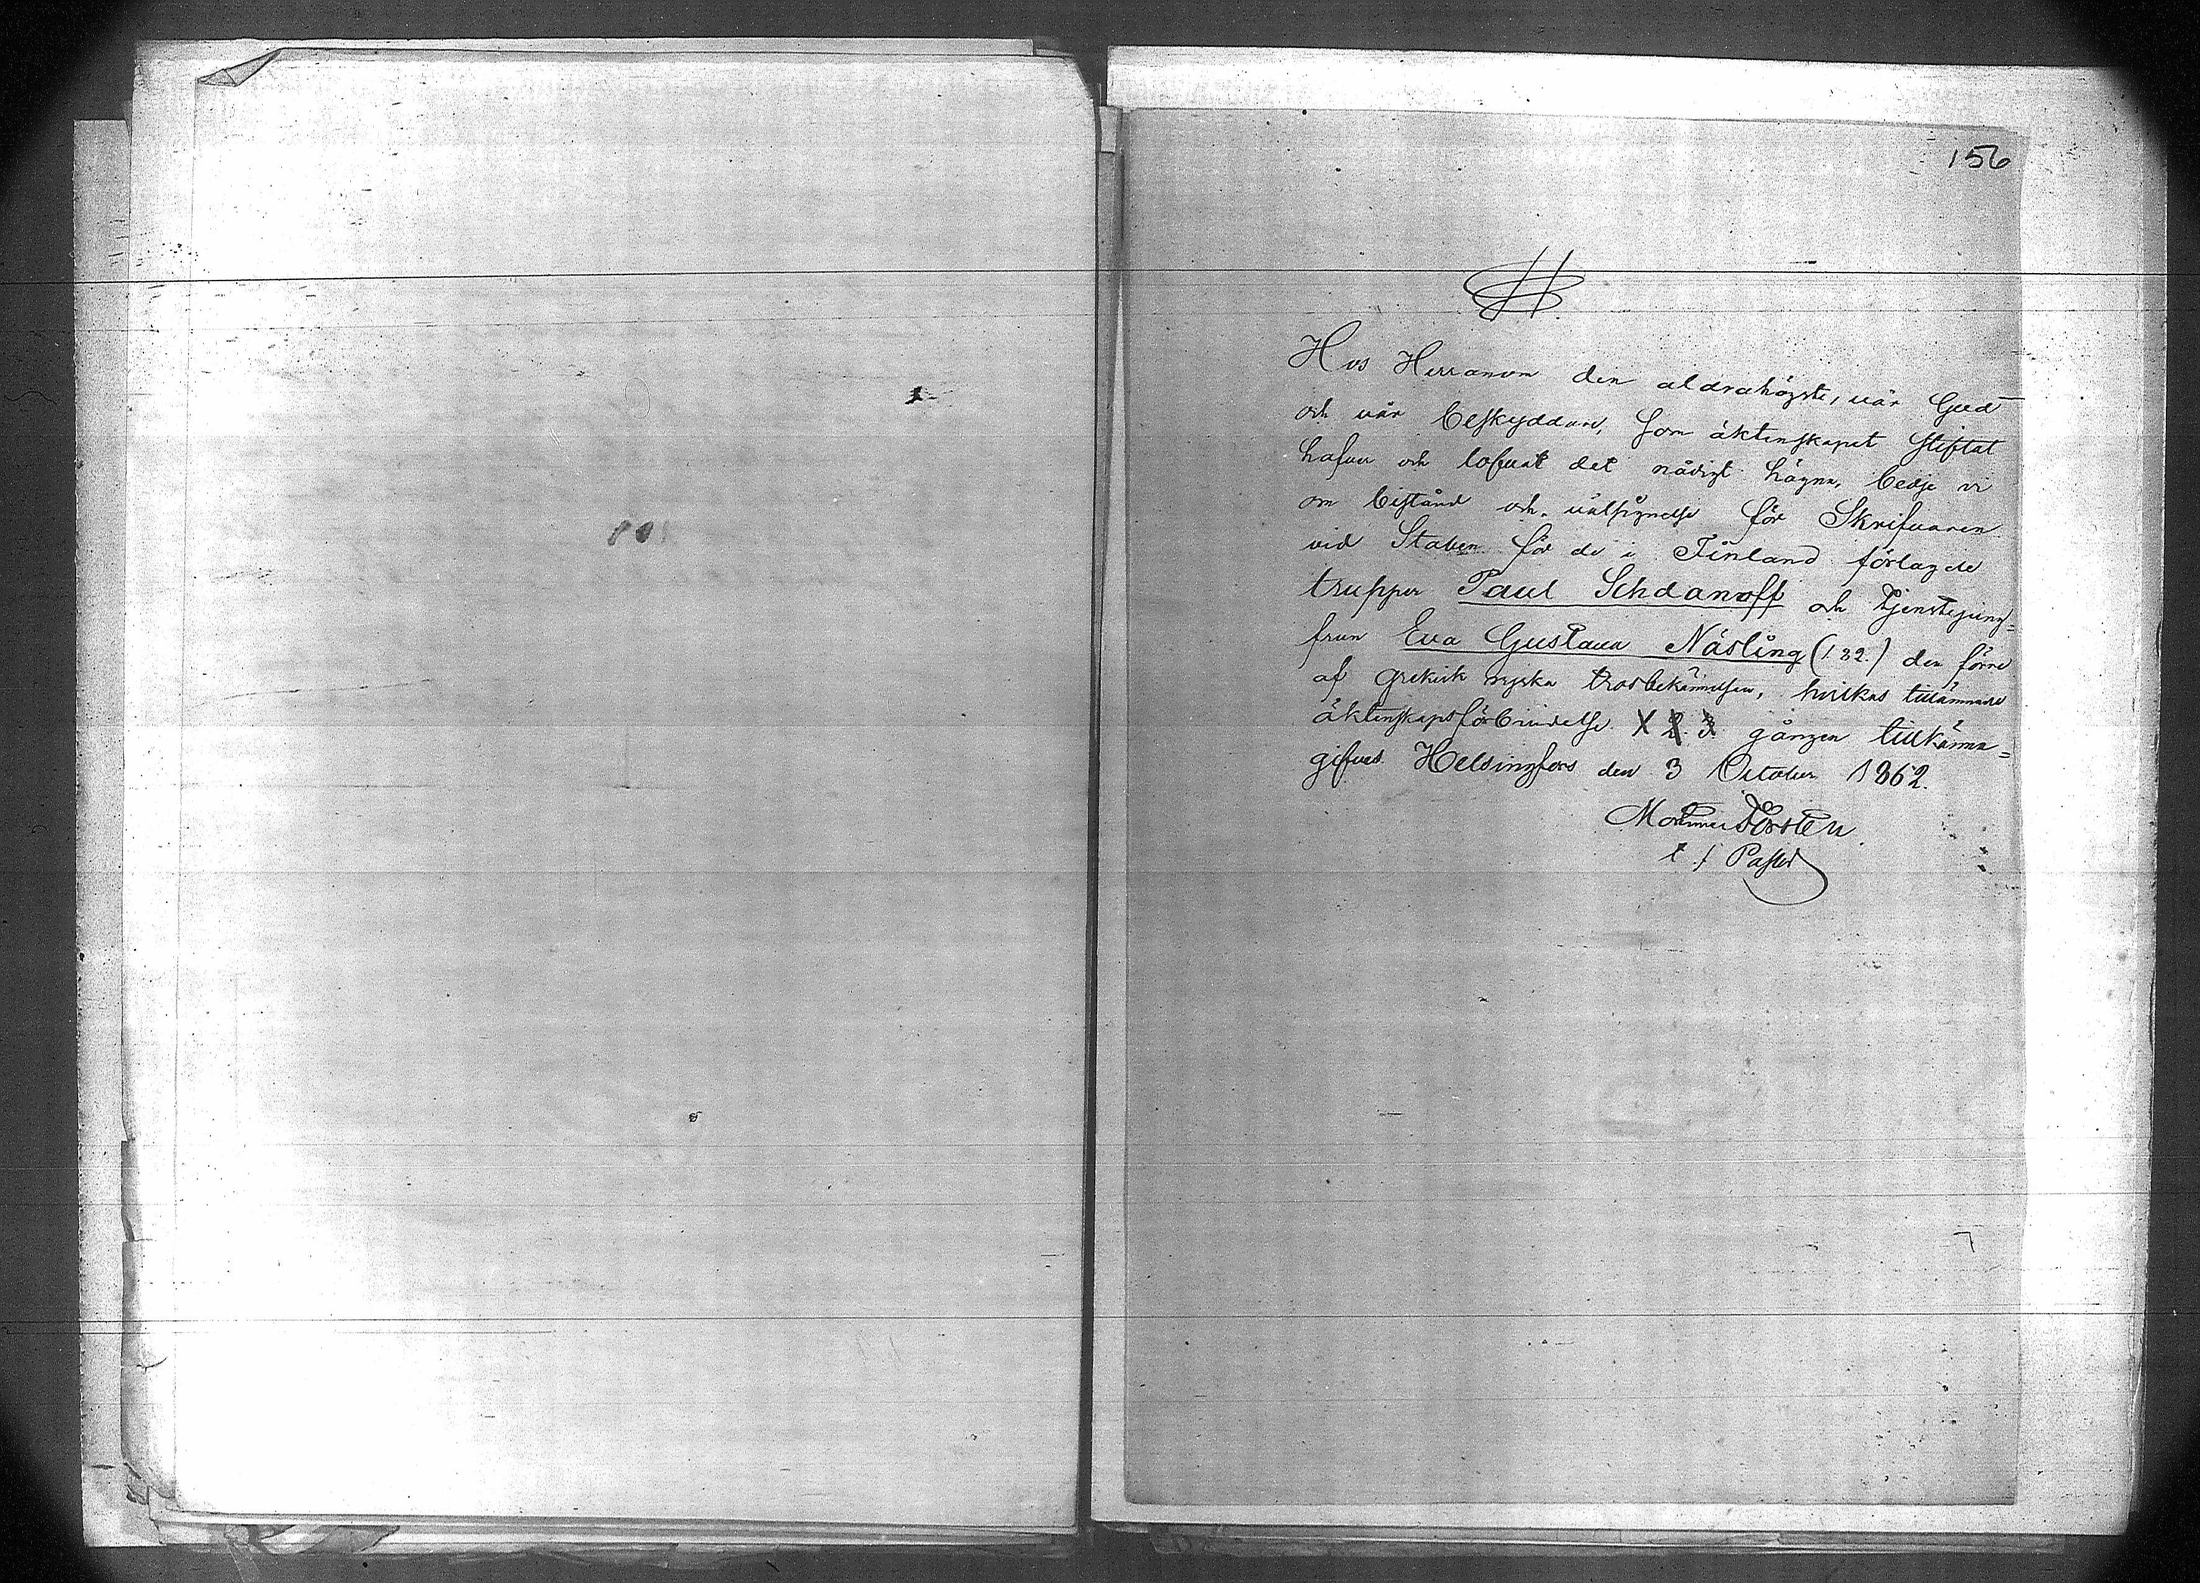 156
Hos Herranom den aldrahögste, vår Gud
och vår beskyddare, som äktenskapet stiftat
hafver och lofvat det nådigt hägna, bedje vi
om bistånd och välsignelse för Skrifvaren
vid Staben för de i Finland förlagde
trupper Paul Schdanoff och tjenstejung=
frun Eva Gustava Näsling (132.) den förre
af grekisk ryska trosbekännelsen, hvilkas tillämnade
äktenskapsförbindelse 1. 2. 3. gången tillkänna=
gifves. Helsingfors den 3 October 1862.
Mortimer Forstén
t f Pastor